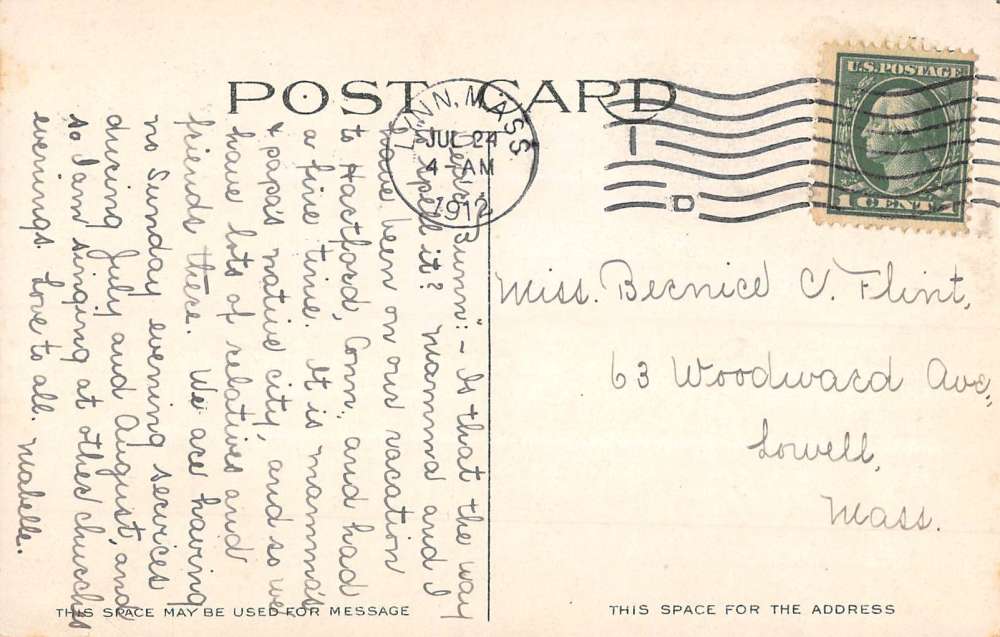 POST CARD
LYNN, MASS
JUL 24
4-AM
1912
U.S. POSTAGE
1 CENT 1
Bunn":- Is that the way
spell it? Mamma and I
have been on our vacation
to Hartford, Conn, and had
a fine time. It is mamma's
& papa's native city, and so we
have lots of relatives and
friends there. We are having
no Sunday evening services
during July and August, and
so I am singing at other churches
evenings. Love to all. Mabelle.
Miss. Bernice C. Flint,
63 Woodward Ave,
Lowell,
Mass.
THIS SPACE MAY BE USED FOR MESSAGE
THIS SPACE FOR THE ADDRESS